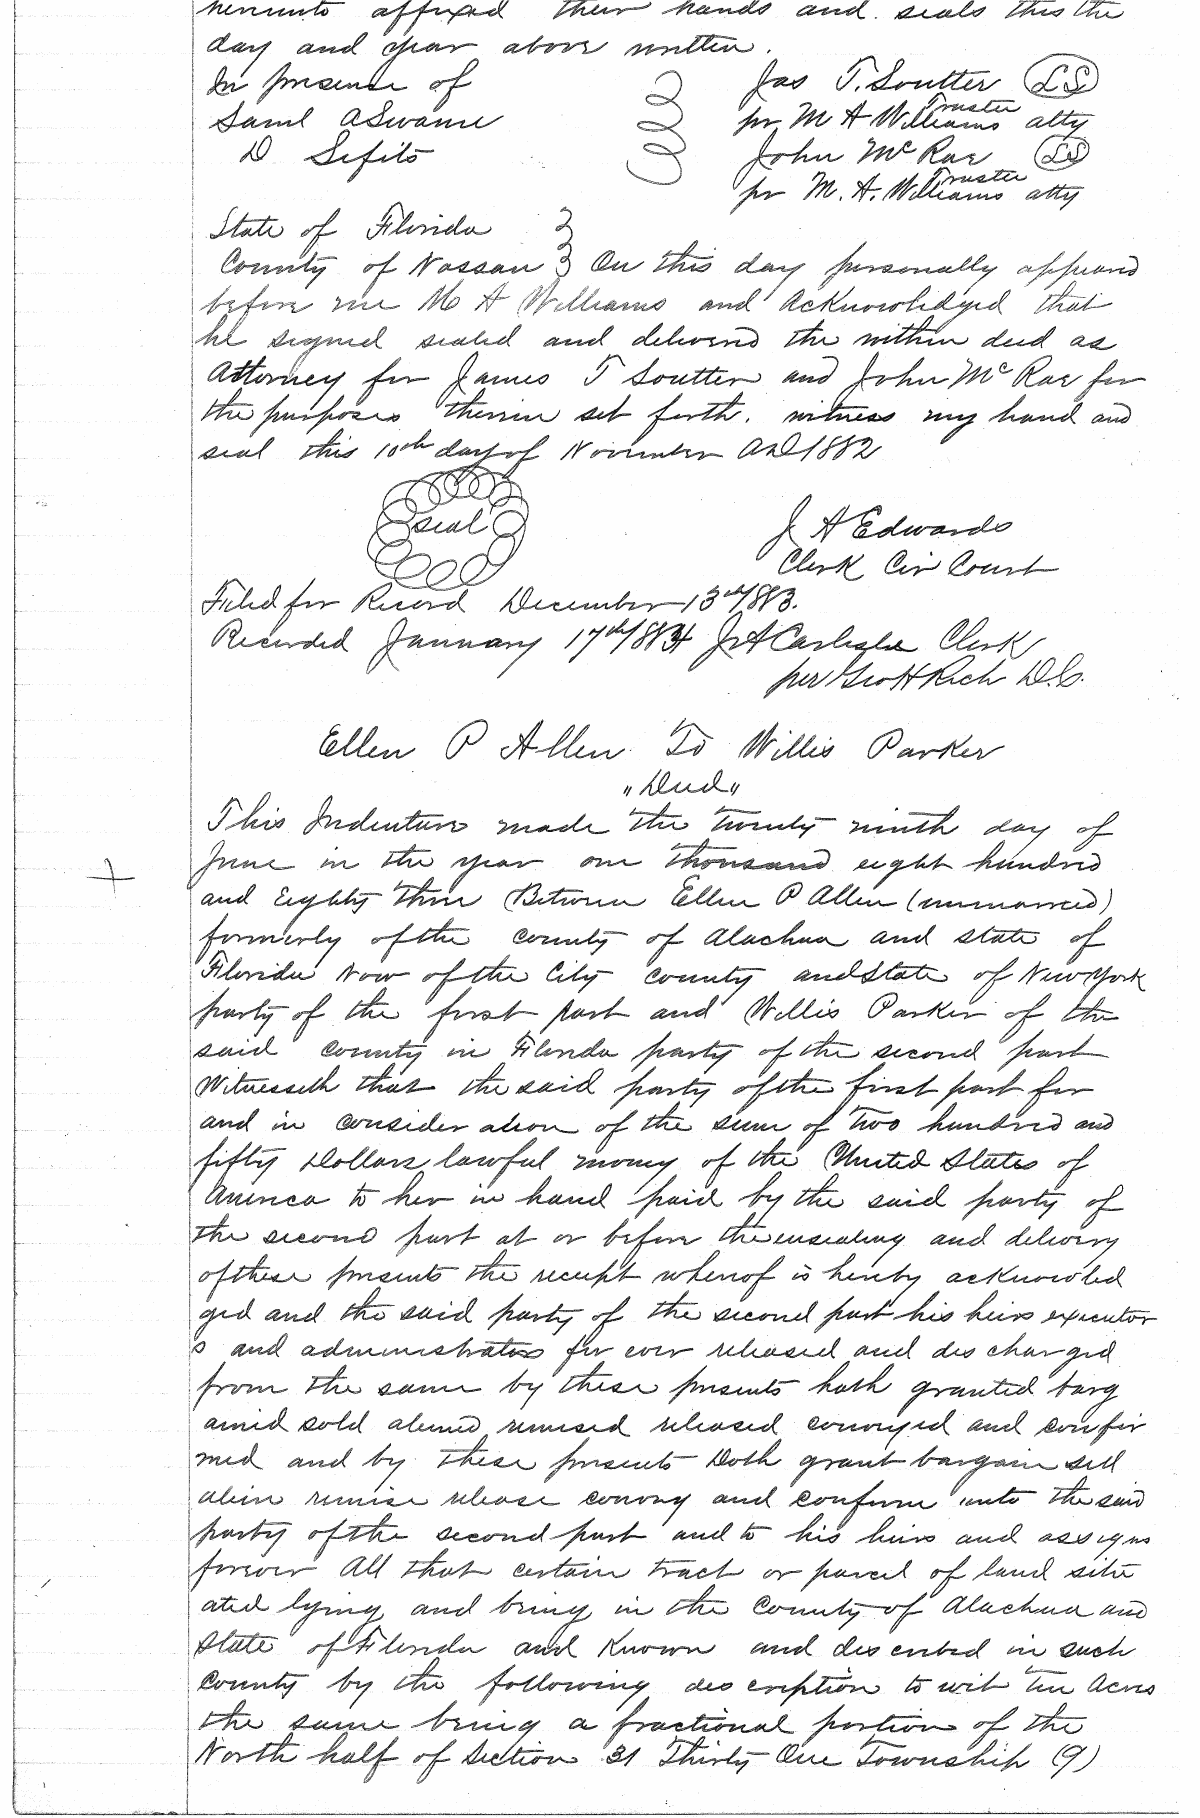 hereunto affixed their hands and seals this the
day and year above written.
In presence of Jas T. Soutter (LS)
Saml A Swann pr M A Williams Trustee atty
D John McRae (LS)
pr M. A. Williams Trustee atty
State of Florida
County of Nassau On this day personally appeared
before me M A Williams and acknowledged that
he signed sealed and delivered the within deed as
Attorney for James T Soutter and John McRae for
the purposes therein set forth. witness my hand and
seal this 10th day of November AD 1882
seal J A Edwards
Clerk Cir Court
Filed for Record December 13th/883.
Recorded January 17th/884 J A Carlisle Clerk
per Geo H Rich D.C.
Ellen P Allen To Willis Parker
"Deed"
This Indenture made the twenty ninth day of
June in the year one thousand eight hundred
and Eighty three Between Ellen P Allen (unmarried)
formerly of the county of Alachua and state of
Florida Now of the City county and State of New York
party of the first part and Willis Parker of the
said county in Florida party of the second part
Witnesseth that the said party of the first part for
and in consideration of the sum of two hundred and
fifty Dollars lawful money of the United States of
America to her in hand paid by the said party of
the second part at or before the ensealing and delivery
of these presents the receipt whereof is hereby acknowled
ged and the said party of the second part his heirs executor
s and administrators for ever released and discharged
from the same by these presents hath granted barg
ained sold aliened remised released conveyed and confir
med and by these presents Doth grant bargain sell
alien remise release convey and confirm unto the said
party of the second part and to his heirs and assigns
forever All that certain tract or parcel of land situ
ated lying and being in the County of Alachua and
State of Florida and Known and described in such
County by the following description to wit Ten Acres
the same being a fractional portion of the
North half of Section 31 Thirty One Township (9)